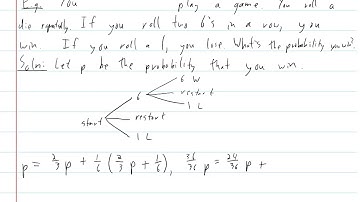 You play a game. You roll a
die repeatedly. If you roll two 6's in a row, you
win. If you roll a 1, you lose. What's the probability you win?
Soln: Let p be the probability that you win.
6 W
6 restart
1 L
start restart
1 L
p = 2/3 p + 1/6 (2/3 p + 1/6), 36/36 p = 24/36 p +